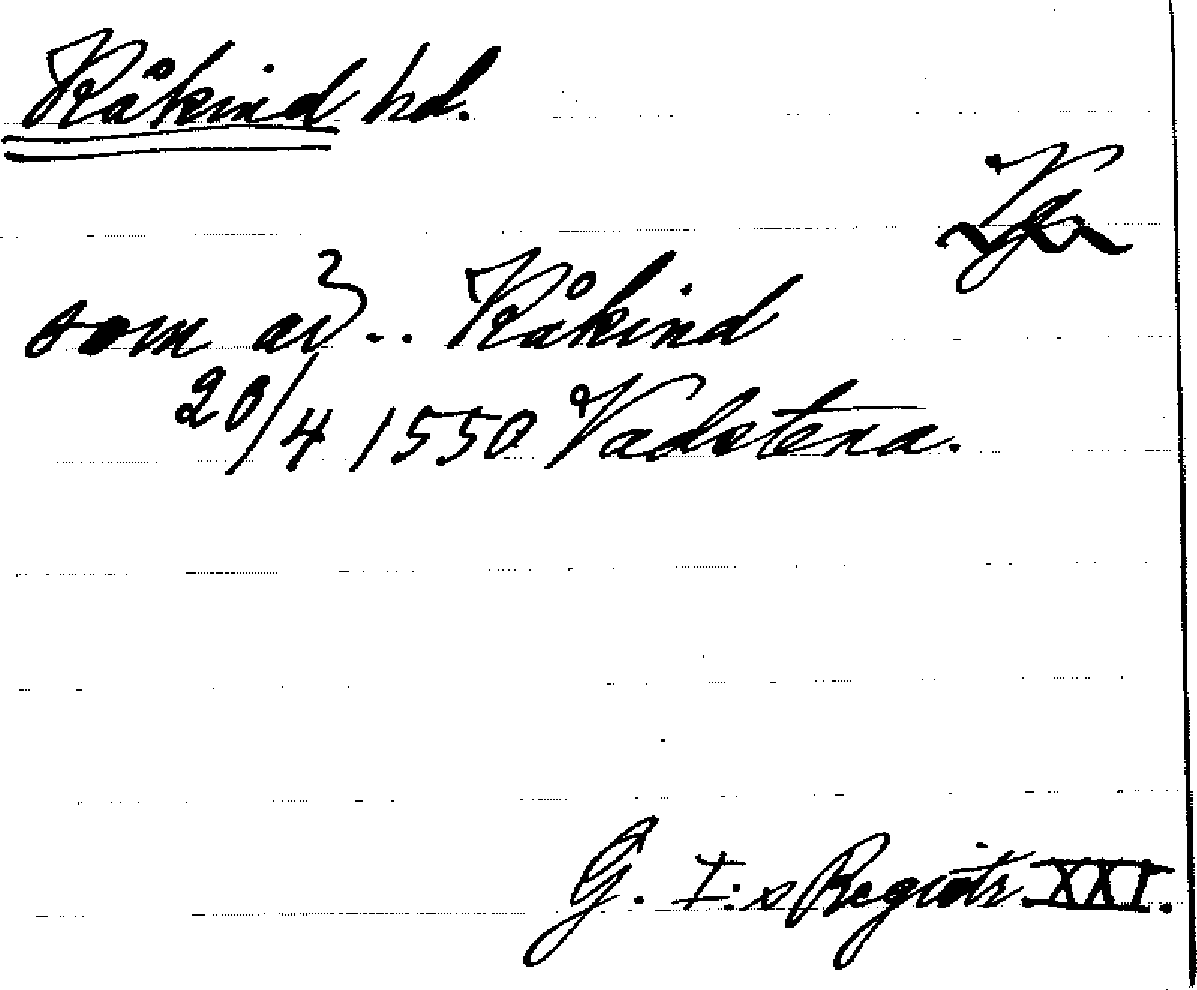 Kåkind hd.
Vg
som av .. Kåkind
20/4 1550 Vadstena.
G. I:s Registr. XXI.